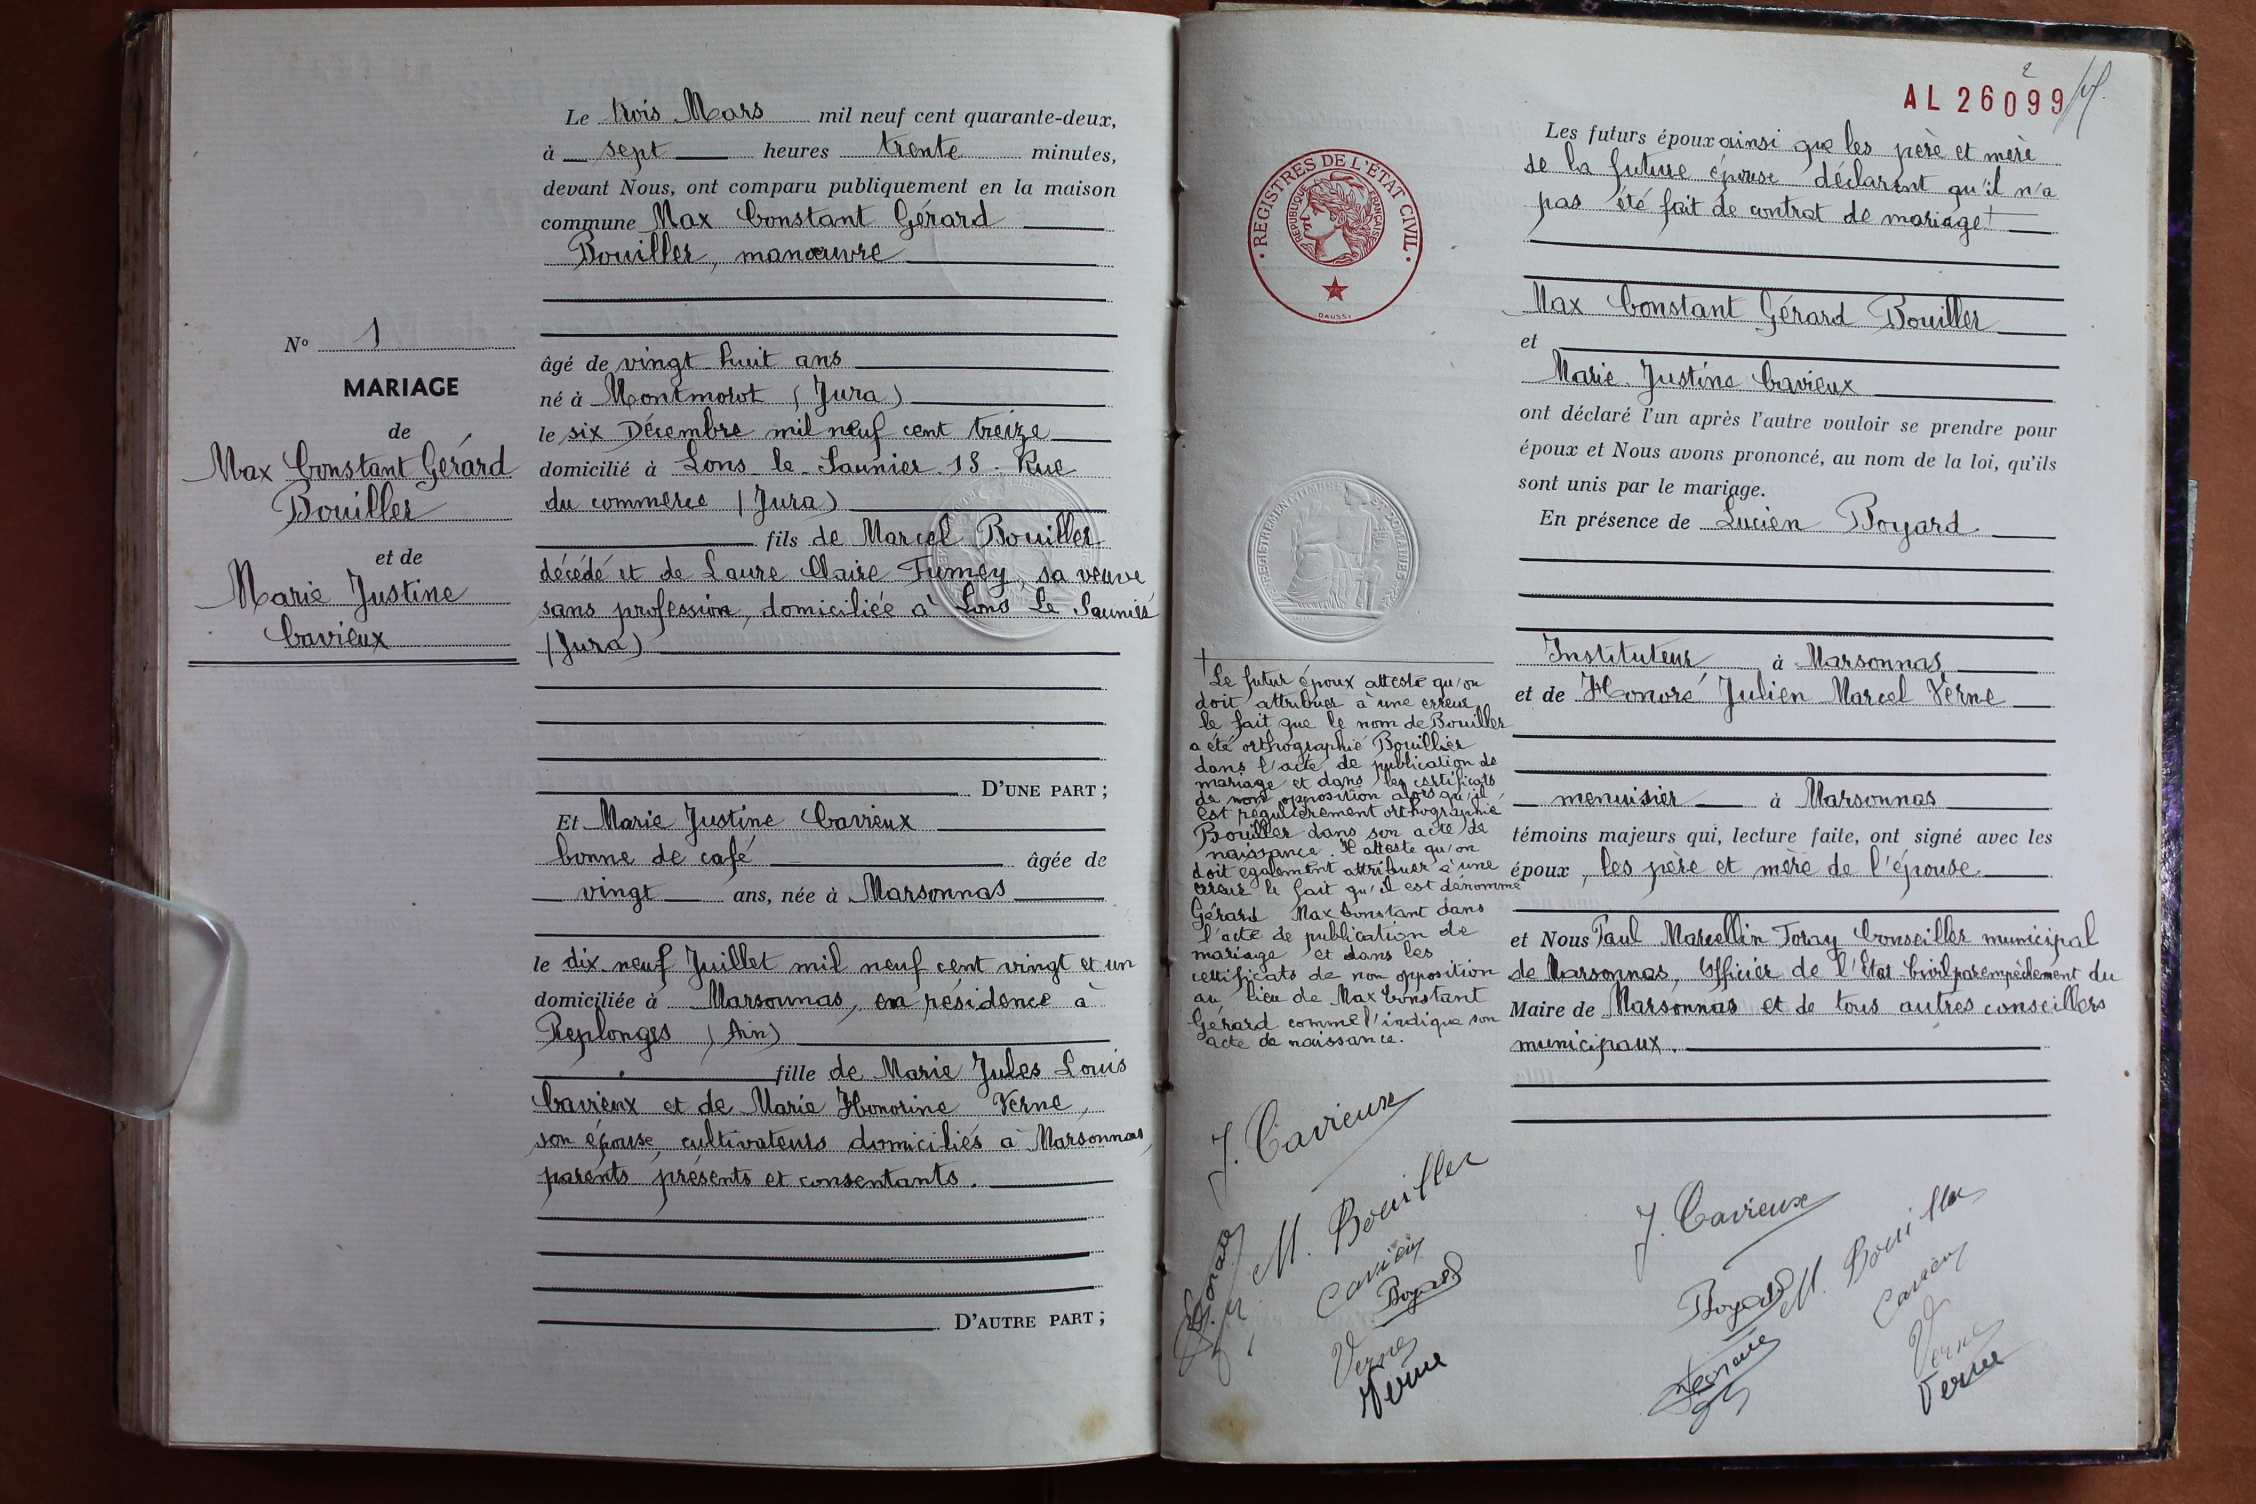 Le trois Mars mil neuf cent quarante-deux,
à sept heures trente minutes,
devant Nous, ont comparu publiquement en la maison
commune Max Constant Gérard
Bouiller, manœuvre
N° 1
MARIAGE
de
Max Constant Gérard
Bouiller
et de
Marie Justine
Cavieux
âgé de vingt huit ans
né à Montmorot (Jura)
le six Décembre mil neuf cent treize
domicilié à Lons le Saunier 18 Rue
du commerce (Jura)
fils de Marcel Bouiller
décédé et de Laure Claire Fumey, sa veuve
sans profession, domiciliée à Lons Le Saunier
(Jura)
D'UNE PART ;
Et Marie Justine Cavieux
bonne de café âgée de
vingt ans, née à Marsonnas
le dix neuf Juillet mil neuf cent vingt et un
domiciliée à Marsonnas, en résidence à
Replonges (Ain)
fille de Marie Jules Louis
Cavieux et de Marie Honorine Verne,
son épouse, cultivateurs domiciliés à Marsonnas,
parents présents et consentants.
D'AUTRE PART ;
2
AL 26099
REGISTRES DE L'ÉTAT CIVIL
RÉPUBLIQUE FRANÇAISE
DAUSSY
Les futurs époux ainsi que les père et mère
de la future épouse déclarent qu'il n'a
pas été fait de contrat de mariage †
Max Constant Gérard Bouiller
et
Marie Justine Cavieux
ont déclaré l'un après l'autre vouloir se prendre pour
époux et Nous avons prononcé, au nom de la loi, qu'ils
sont unis par le mariage.
En présence de Lucien Boyard
Instituteur à Marsonnas
et de Honoré Julien Marcel Verne
menuisier à Marsonnas
témoins majeurs qui, lecture faite, ont signé avec les
époux, les père et mère de l'épouse
et Nous Paul Marcellin Toray Conseiller municipal
de Marsonnas, Officier de l'Etat Civil par empêchement du
Maire de Marsonnas et de tous autres conseillers
municipaux.
ENREGISTREMENT TIMBRE ET DOMAINES
† Le futur époux atteste qu'on
doit attribuer à une erreur
le fait que le nom de Bouiller
a été orthographié Bouillier
dans l'acte de publication de
mariage et dans les certificats
de non opposition alors qu'il
est régulièrement orthographié
Bouiller dans son acte de
naissance. Il atteste qu'on
doit également attribuer à une
erreur le fait qu'il est dénommé
Gérard Max Constant dans
l'acte de publication de
mariage et dans les
certificats de non opposition
au lieu de Max Constant
Gérard comme l'indique son
acte de naissance.
J. Cavieux
M. Bouiller
Cavieux
Boyard
Verne
Verne
J. Cavieux
M. Bouiller
Boyard
Cavieux
Verne
Verne